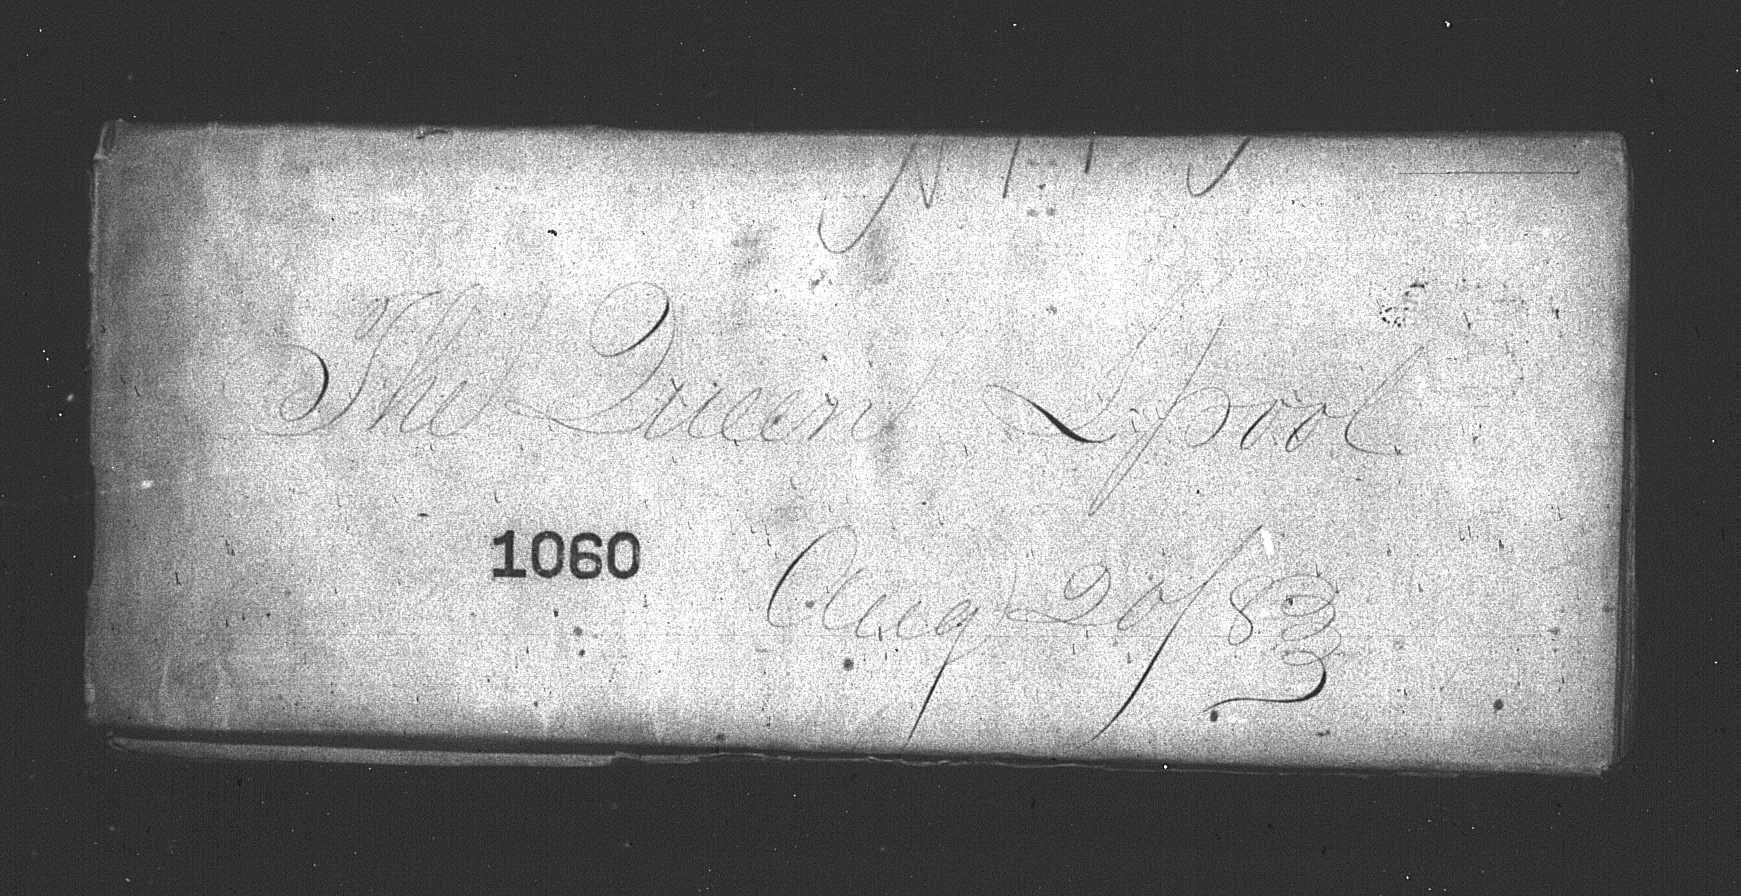 The Queen L'pool
1060
Aug 20/83